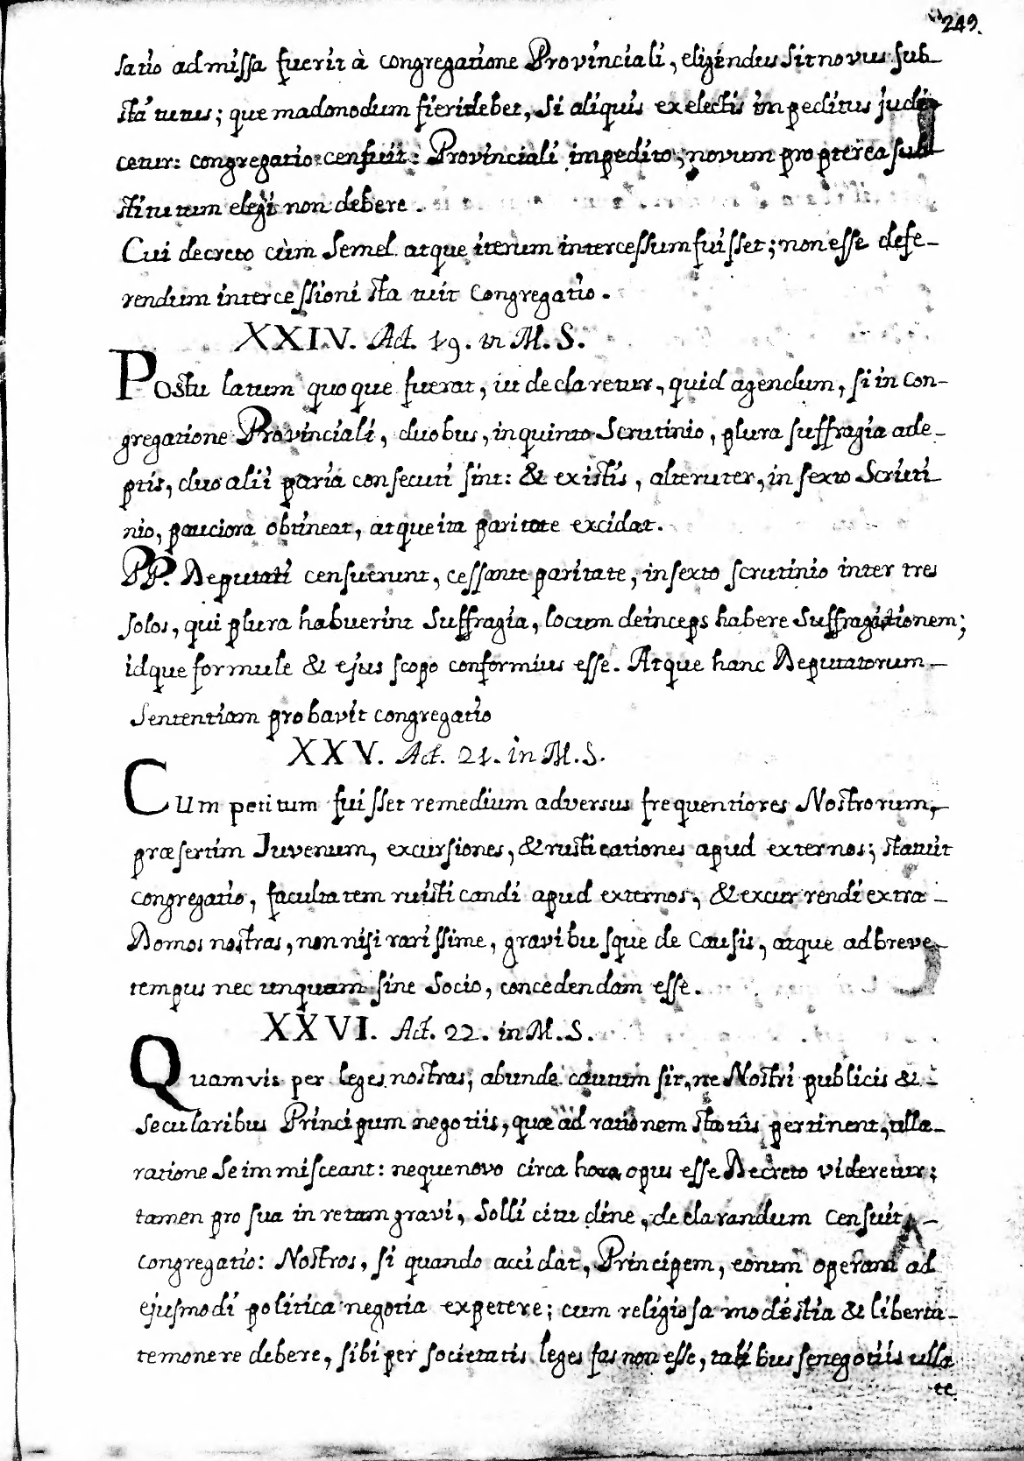 249.
satio admissa fuerit à congregatione Provinciali, eligendus sit novus sub-
stitutus; que madmodum fieri debet, si aliquis ex electis impeditus judi-
cetur: congregatio censuit: Provinciali impedito, novum propterea sub
stitutum elegi non debere.
Cui decreto cùm semel atque iterum intercessum fuisset; non esse defe-
rendum intercessioni statuit Congregatio.
XXIV. Act. 19. in M.S.
Postulatum quoque fuerat, ut declaretur, quid agendum, si in con-
gregatione Provinciali, duobus, in quinto Scrutinio, plura suffragia ade-
ptis, duo alii paria consecuti sint: & ex istis, alteruter, in sexto Scruti
nio, pauciora obtineat, atque ita paritate excidat.
PP. Deputati censuerunt, cessante paritate, in sexto scrutinio inter tres
solos, qui plura habuerint suffragia, locum deinceps habere suffragationem;
idque formule & ejus scopo conformius esse. Atque hanc Deputatorum-
Sententiam probavit congregatio
XXV. Act. 21. in M.S.
Cum petitum fuisset remedium adversus frequentiores Nostrorum,-
præsertim Juvenum, excursiones, & rusticationes apud externos; statuit
congregatio, facultatem rusticandi apud externos, & excurrendi extra-
Domos nostras, non nisi rarissime, gravibusque de Causis, atque ad breve-
tempus nec unquam sine Socio, concedendam esse.
XXVI. Act. 22. in M.S.
Quamvis per leges nostras, abunde cautum sit, ne Nostri publicis &-
secularibus Principum negotiis, quæ ad rationem status pertinent, ulla-
ratione se immisceant: neque novo circa hoc opus esse Decreto videretur;
tamen pro sua in re tam gravi, sollicitudine, declarandum censuit-
congregatio: Nostros, si quando accidat, Principem, eorum operam ad
ejusmodi politica negotia expetere; cum religiosa modestia & liberta-
te monere debere, sibi per societatis leges fas non esse, talibus se negotiis ulla